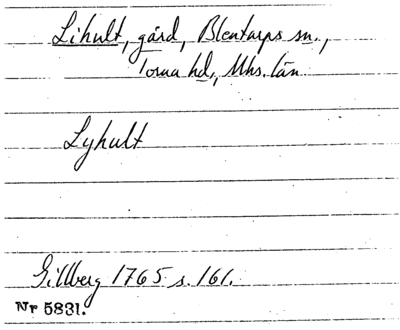 Lihult, gård, Blentarps sn.,
Torna hd, Mhs. län
Lyhult
Gillberg 1765 s. 161.
Nr 5831.